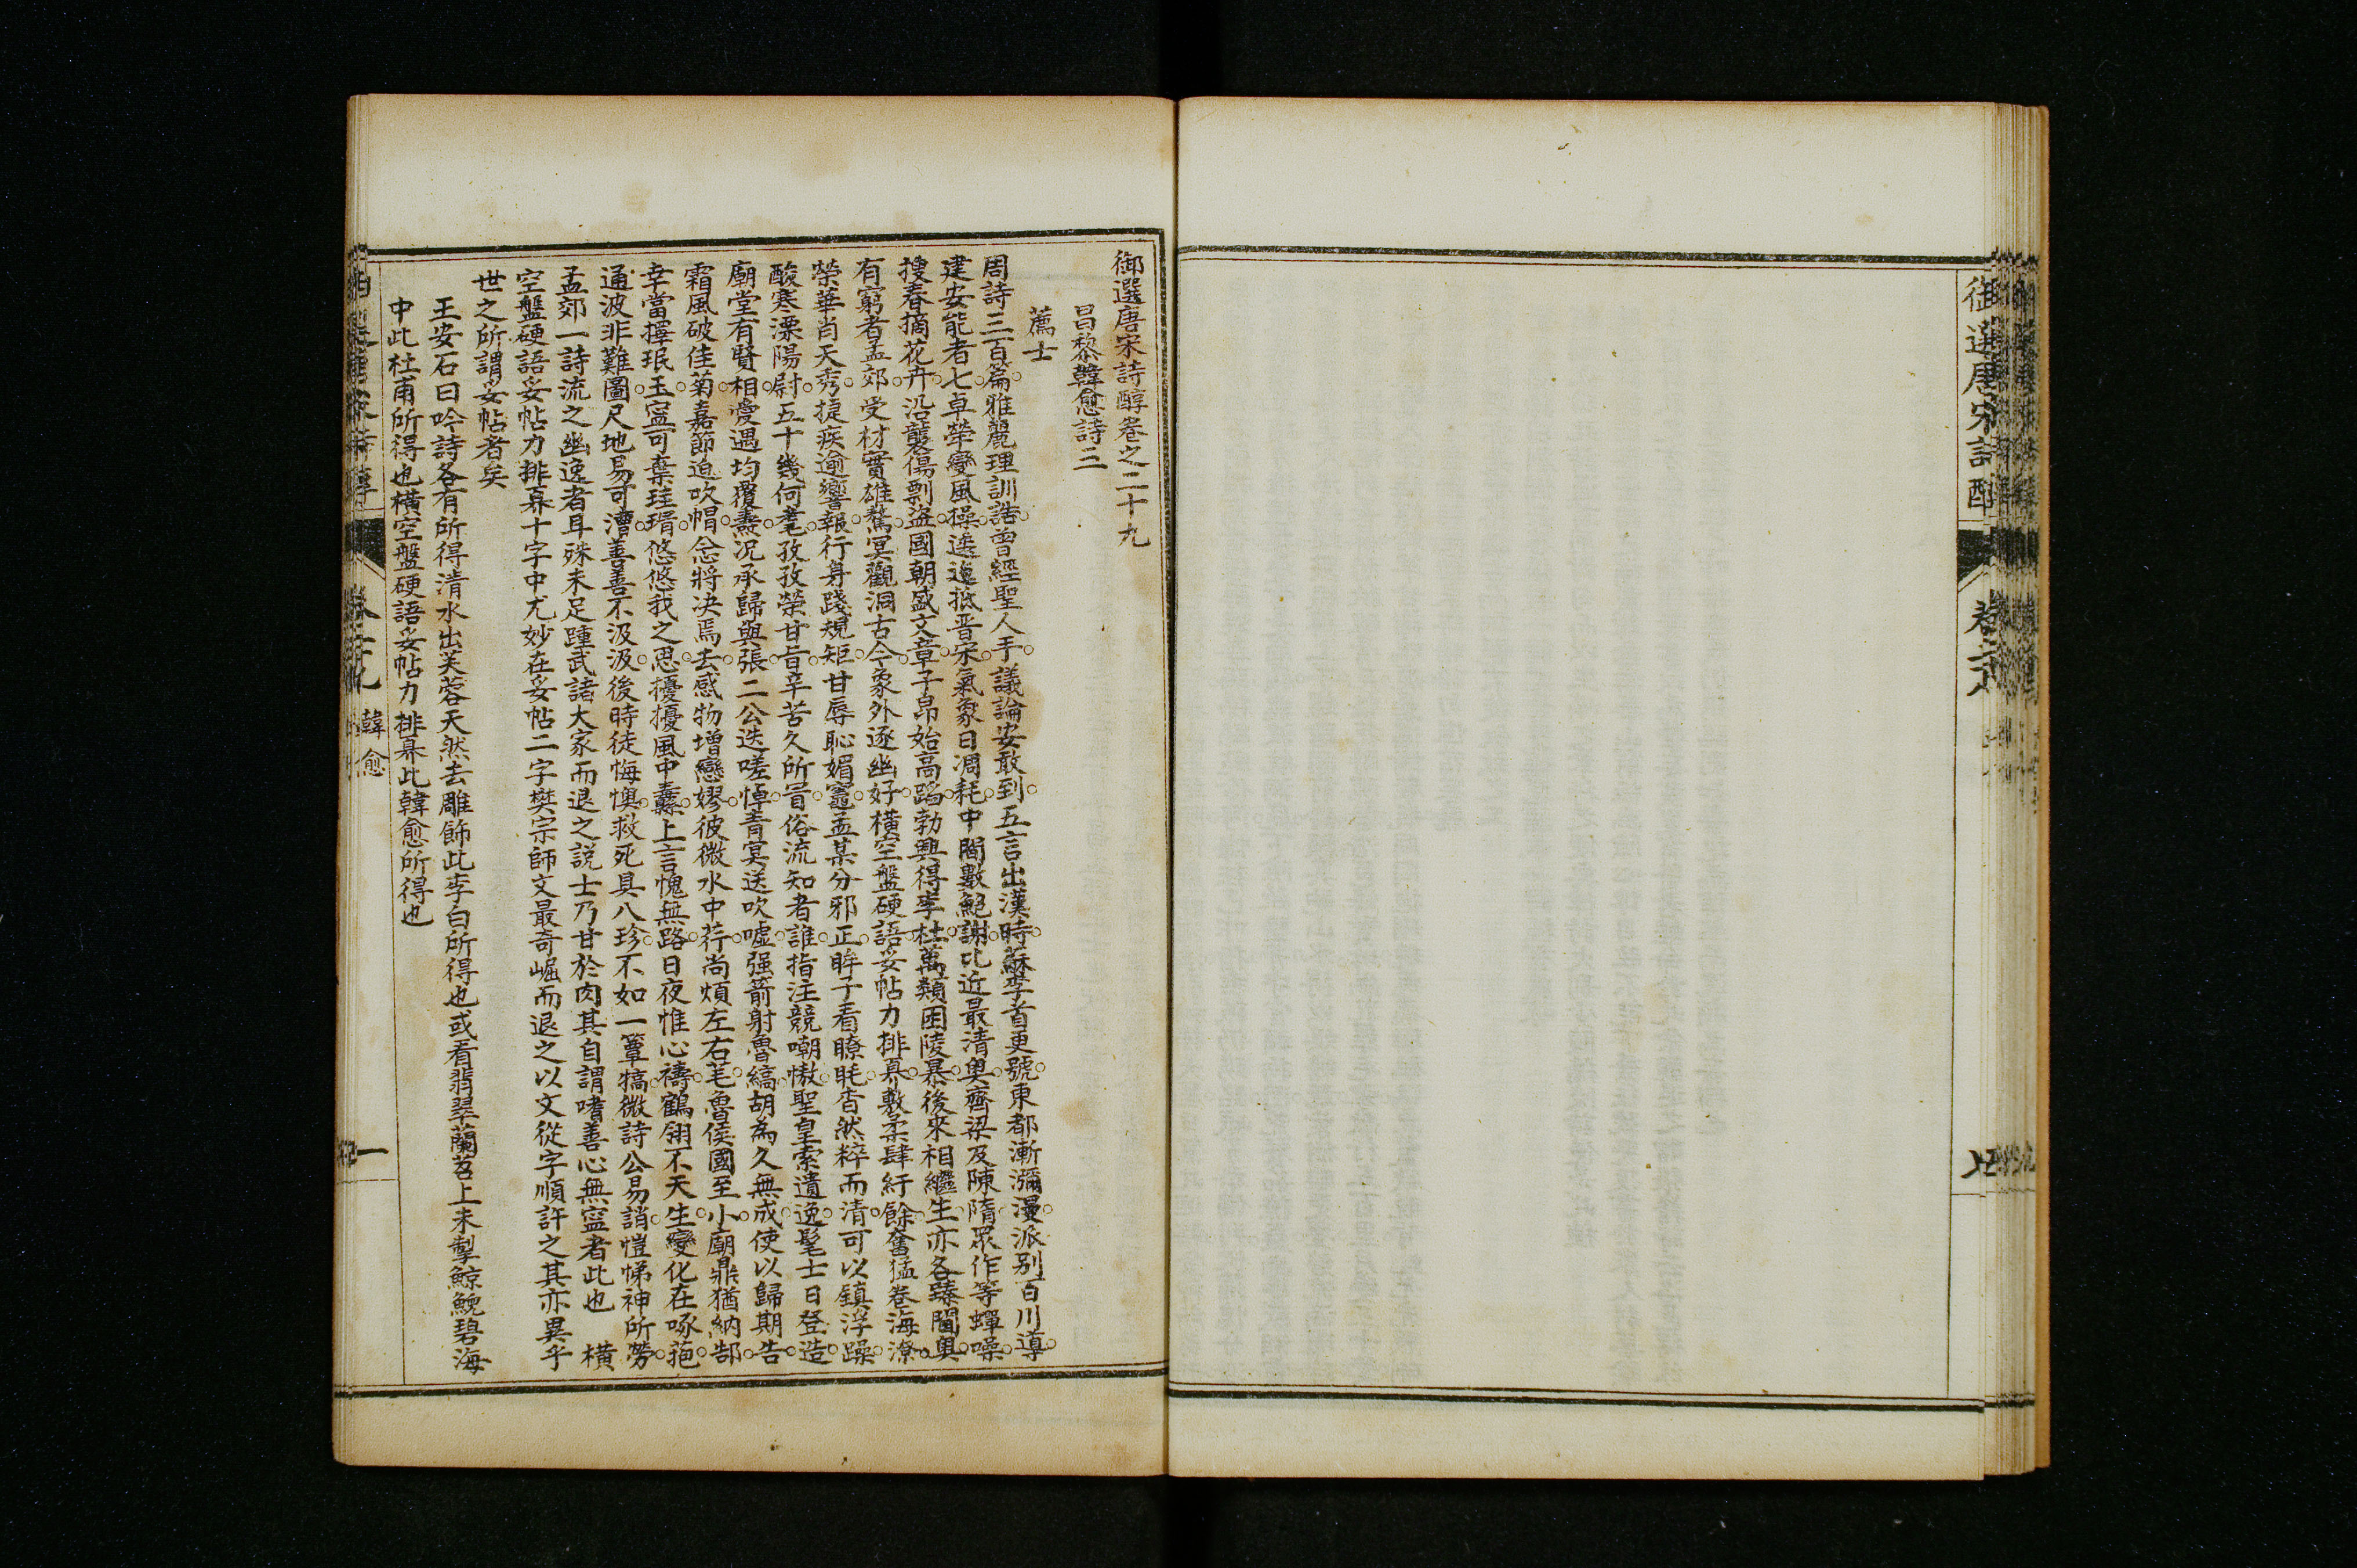 御選唐宋詩醇
御選唐宋詩醇卷之二十九
昌黎韓愈詩三
薦士
周詩三百篇○雅麗理訓誥○曾經聖人手○議論安敢到○五言出漢時○蘇李首更號○東都漸瀰漫○派別百川導○
建安能者七○卓犖變風操○逶迤抵晋宋○氣象日凋耗○中間數鮑謝○比近最清奧○齊梁及陳隋○眾作等蟬噪○
搜春摘花卉○沿襲傷剽盜○國朝盛文章○子昂始高蹈○勃興得李杜○萬類困陵暴○後來相繼生○亦各臻閫奧○
有窮者孟郊○受材實雄驁○冥觀洞古今○象外逐幽好○橫空盤硬語○妥帖力排奡○敷柔肆紆餘○奮猛卷海潦○
榮華肖天秀○捷疾逾響報○行身踐規矩○甘辱恥媚竈○孟某分邪正○眸子看瞭眊○杳然粹而清○可以鎮浮躁○
酸寒溧陽尉○五十幾何耄○孜孜榮甘旨○辛苦久所冒○俗流知者誰○指注競嘲慠○聖皇索遺逸○髦士日登造○
廟堂有賢相○愛遇均覆燾○況承歸與張○二公迭嗟悼○青冥送吹噓○强箭射魯縞○胡為久無成○使以歸期告○
霜風破佳菊○嘉節迫吹帽○念將決焉去○感物增戀嫪○彼微水中荇○尚煩左右芼○魯侯國至小○廟鼎猶納郜○
幸當擇珉玉○寧可棄珪瑁○悠悠我之思○擾擾風中纛○上言愧無路○日夜惟心禱○鶴翎不天生○變化在啄菢○
通波非難圖○尺地易可漕○善善不汲汲○後時徒悔懊○救死具八珍○不如一簞犒○微詩公易誚○愷悌神所勞○
孟郊一詩流之幽逸者耳殊未足踵武諸大家而退之說士乃甘於肉其自謂嗜善心無寧者此也　橫
空盤硬語妥帖力排奡十字中尤妙在妥帖二字樊宗師文最奇崛而退之以文從字順許之其亦異乎
世之所謂妥帖者矣
王安石曰吟詩各有所得清水出芙蓉天然去雕飾此李白所得也或看翡翠蘭苕上未掣鯨鯢碧海
中此杜甫所得也橫空盤硬語妥帖力排奡此韓愈所得也
韓愈
一